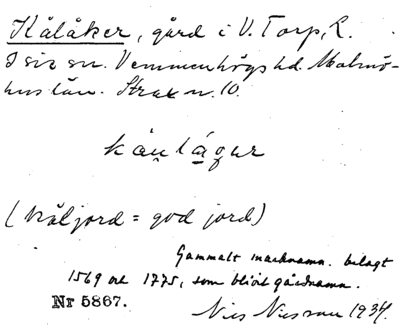 Kålåker, gård i V. Torp, L.
Isie sn. Vemmenhögs hd. Malmö-
hus län. Strax n. 10.
(kåljord = god jord)
Gammalt marknamn. belagt
1569 och 1775, som blivit gårdnamn.
Nr 5867.
Nils Nilsson 1934.